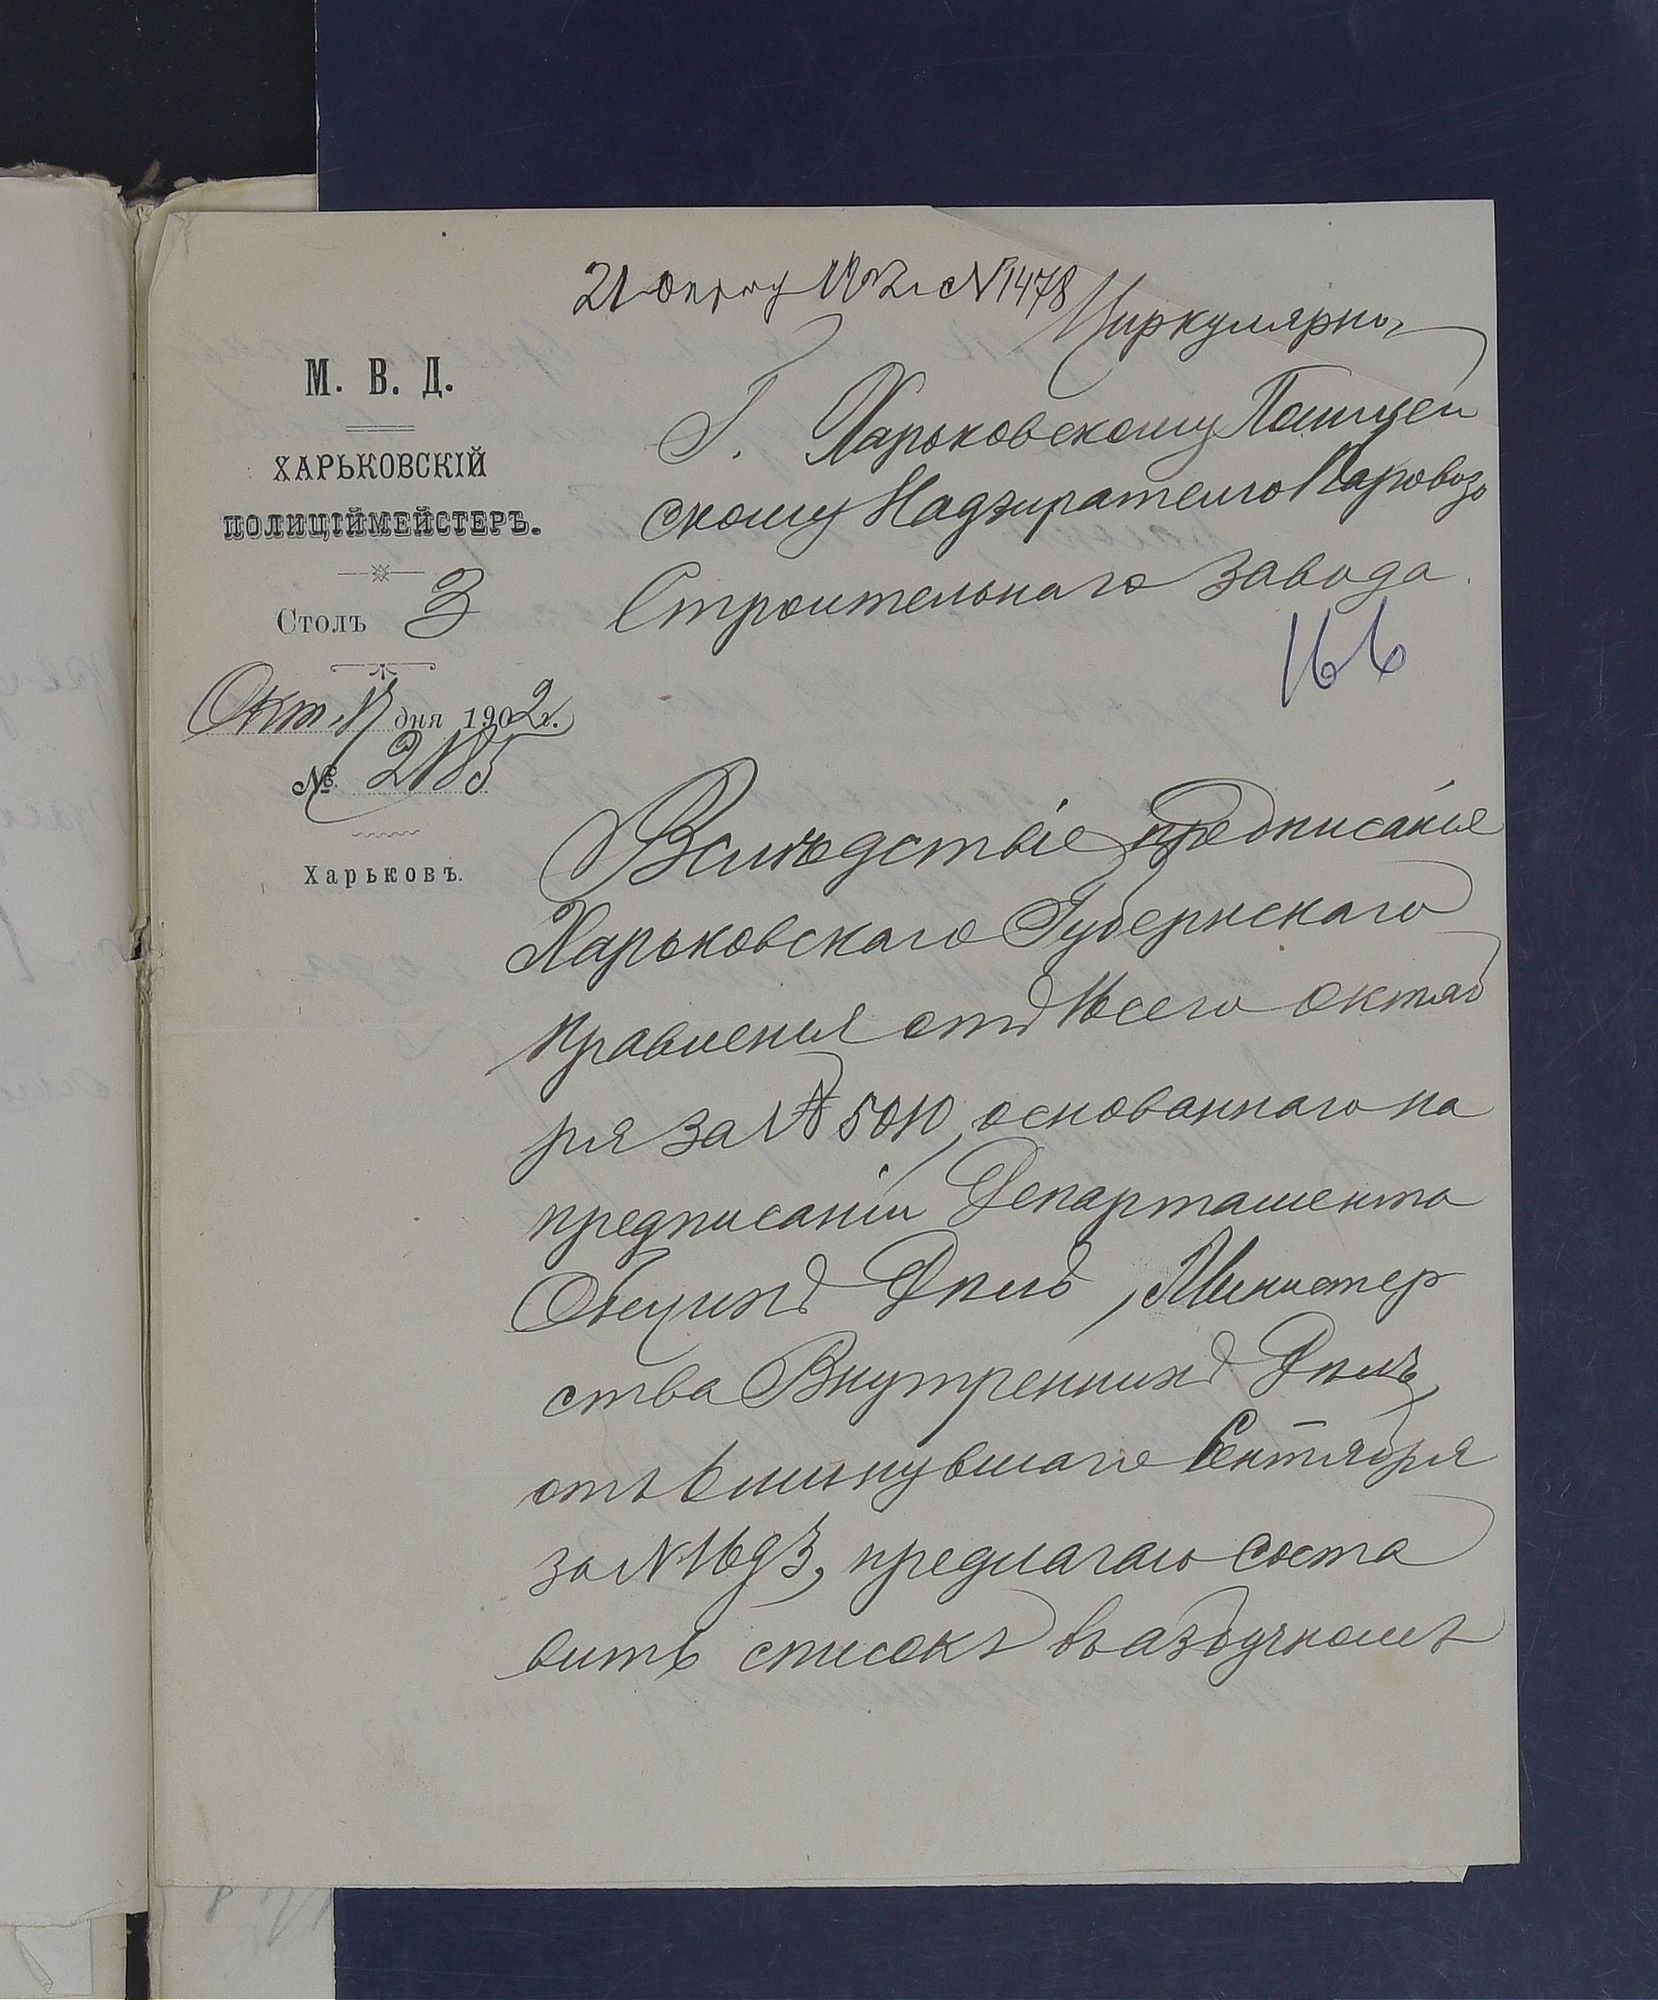 21 Октяб 1902 г № 1478
Циркулярно,
М. В. Д.
ХАРЬКОВСКІЙ
ПОЛИЦІЙМЕЙСТЕРЪ.
Столъ 3
Окт. 17 дня 1902 г.
№ 2185
Харьковъ.
Г. Харьковскому Полицей
скому Надзирателю Паровозо
Строительнаго завода.
166
Вслѣдствіе предписанія
Харьковскаго Губернскаго
Правленія отъ сего октяб
ря за № 5010, основаннаго на
предписаніи Департамента
Общихъ Дѣлъ, Министер
ства Внутреннихъ Дѣлъ,
отъ 6 минувшаго Сентября
за № 1693, предлагаю соста
вить списокъ въ азбучномъ